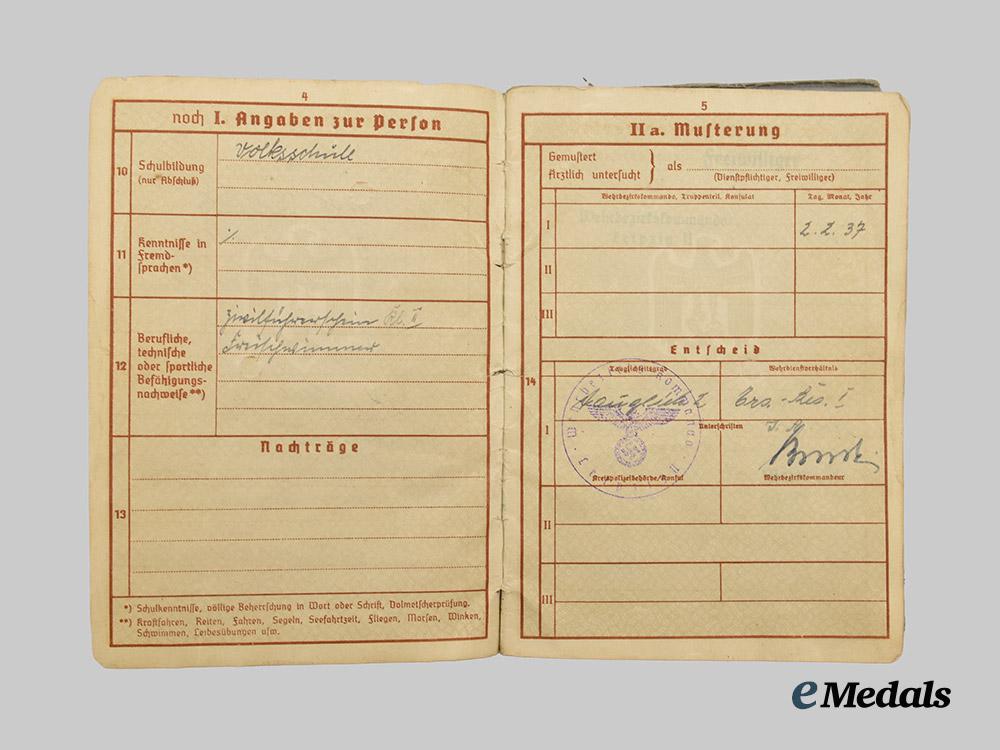 4
noch I. Angaben zur Person
10 Schulbildung
(nur Abschluß)
Volksschule
11 Kenntnisse in
Fremd-
sprachen*)
%
12 Berufliche,
technische
oder sportliche
Befähigungs-
nachweise**)
Zivilführerschein Kl. II
Freischwimmer
Nachträge
13
*) Schulkenntnisse, völlige Beherrschung in Wort oder Schrift, Dolmetscherprüfung.
**) Kraftfahren, Reiten, Fahren, Segeln, Seefahrtzeit, Fliegen, Morsen, Winken,
Schwimmen, Leibesübungen usw.
5
II a. Musterung
Gemustert
Ärztlich untersucht } als
(Dienstpflichtiger, Freiwilliger)
Wehrbezirkskommando, Truppenteil, Konsulat
Tag, Monat, Jahr
I
2.2.37
II
III
Entscheid
14
Tauglichkeitsgrad
Wehrdienstverhältnis
tauglich 2
Ers.-Res. I
I
Unterschriften
Kreispolizeibehörde/Konsul
Wehrbezirkskommandeur
II
III
eMedals